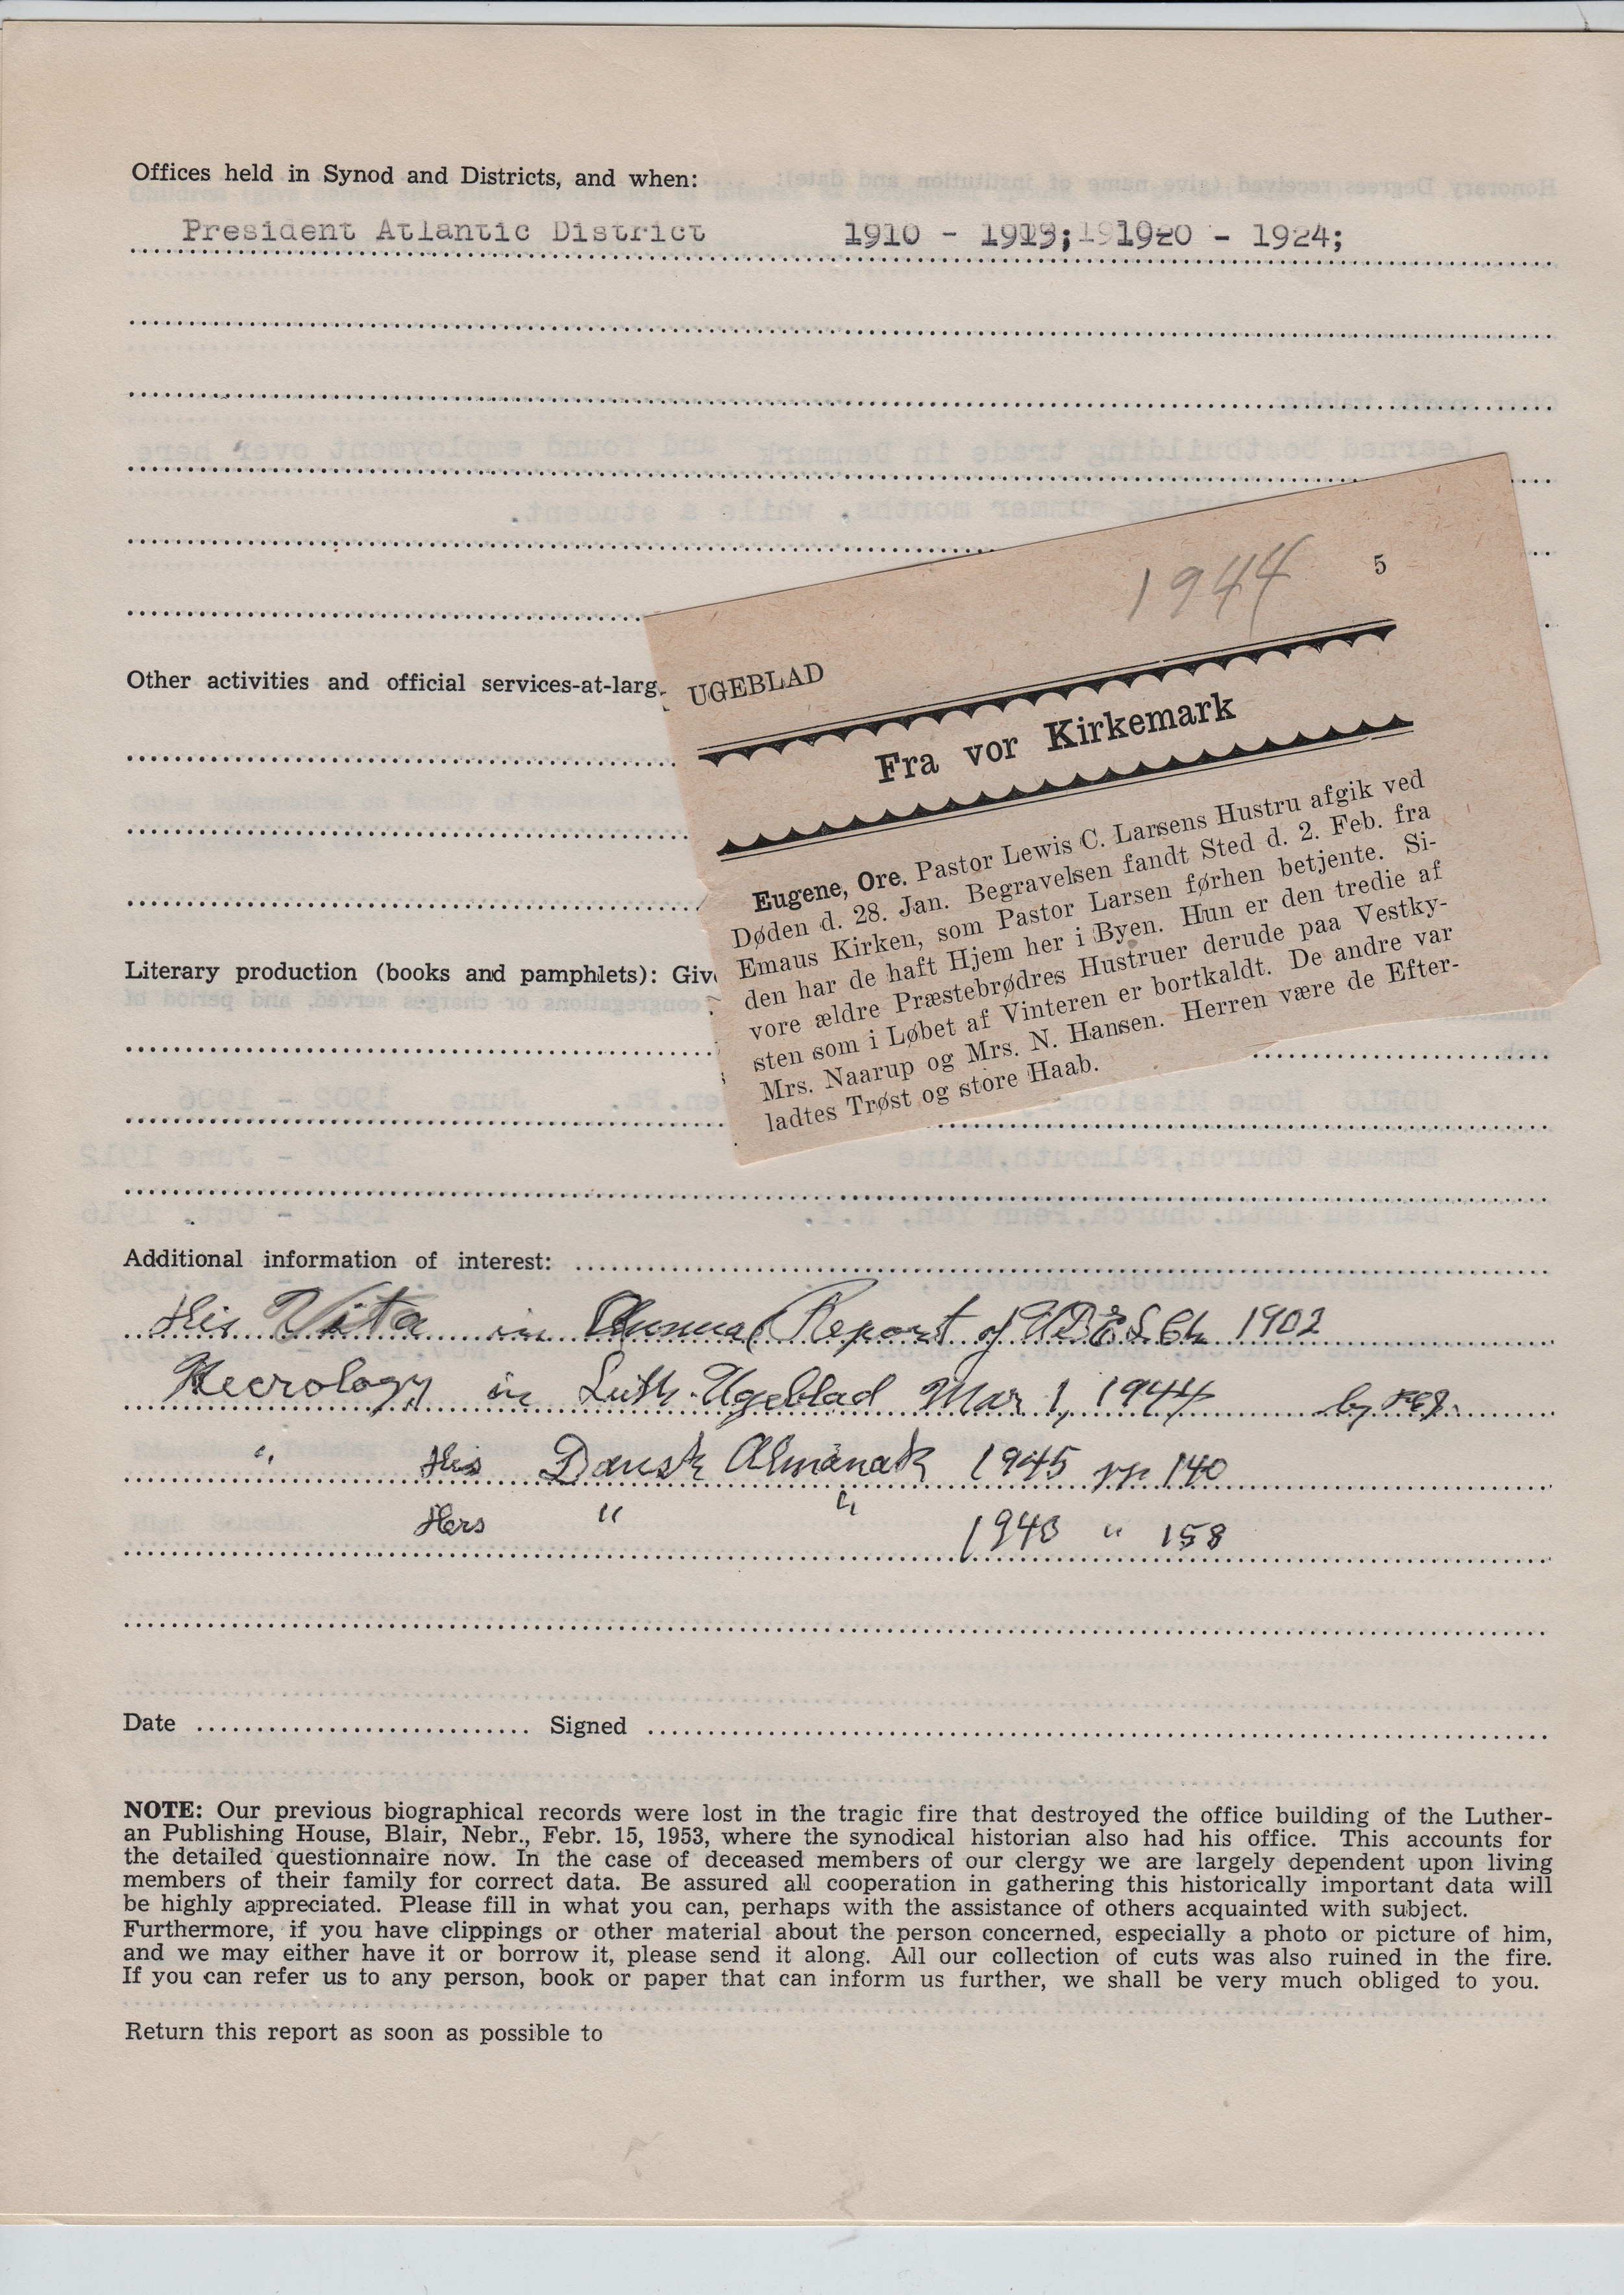 Offices held in Synod and Districts, and when:
President Atlantic District 1910 - 1913; 1920 - 1924;
Other activities and official services-at-larg
Literary production (books and pamphlets): Giv
1944
5
UGEBLAD
Fra vor Kirkemark
Eugene, Ore. Pastor Lewis C. Larsens Hustru afgik ved
Døden d. 28. Jan. Begravelsen fandt Sted d. 2. Feb. fra
Emaus Kirken, som Pastor Larsen førhen betjente. Si-
den har de haft Hjem her i Byen. Hun er den tredie af
vore ældre Præstebrødres Hustruer derude paa Vestky-
sten som i Løbet af Vinteren er bortkaldt. De andre var
Mrs. Naarup og Mrs. N. Hansen. Herren være de Efter-
ladtes Trøst og store Haab.
Additional information of interest:
His Vita in Annual Report of UDELCh 1902
Necrology in Luth. Ugeblad Mar 1, 1944 by
" His Dansk Almanak 1945 pp 140
Hers " " 1948 " 158
Date Signed
NOTE: Our previous biographical records were lost in the tragic fire that destroyed the office building of the Luther-
an Publishing House, Blair, Nebr., Febr. 15, 1953, where the synodical historian also had his office. This accounts for
the detailed questionnaire now. In the case of deceased members of our clergy we are largely dependent upon living
members of their family for correct data. Be assured all cooperation in gathering this historically important data will
be highly appreciated. Please fill in what you can, perhaps with the assistance of others acquainted with subject.
Furthermore, if you have clippings or other material about the person concerned, especially a photo or picture of him,
and we may either have it or borrow it, please send it along. All our collection of cuts was also ruined in the fire.
If you can refer us to any person, book or paper that can inform us further, we shall be very much obliged to you.
Return this report as soon as possible to